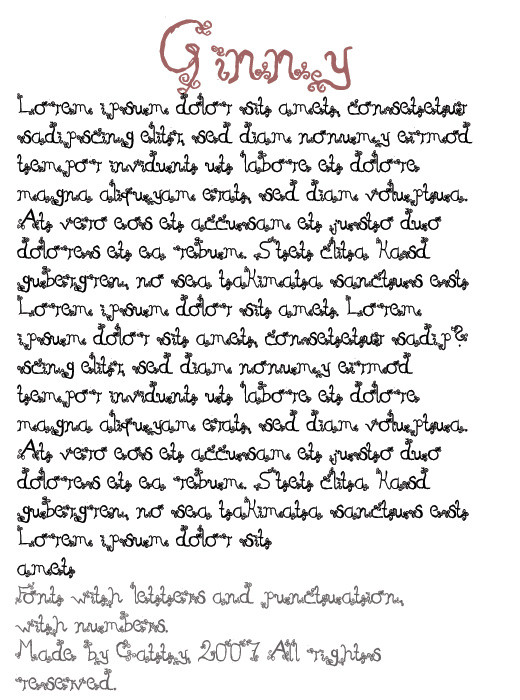 Ginny
Lorem ipsum dolor sit amet, consetetur
sadipscing elitr, sed diam nonumy eirmod
tempor invidunt ut labore et dolore
magna aliquyam erat, sed diam voluptua.
At vero eos et accusam et justo duo
dolores et ea rebum. Stet clita kasd
gubergren, no sea takimata sanctus est
Lorem ipsum dolor sit amet. Lorem
ipsum dolor sit amet, consetetur sadip?
scing elitr, sed diam nonumy eirmod
tempor invidunt ut labore et dolore
magna aliquyam erat, sed diam voluptua.
At vero eos et accusam et justo duo
dolores et ea rebum. Stet clita kasd
gubergren, no sea takimata sanctus est
Lorem ipsum dolor sit
amet
Font with letters and punctuation,
with numbers.
Made by Catty, 2007 All rights
reserved.